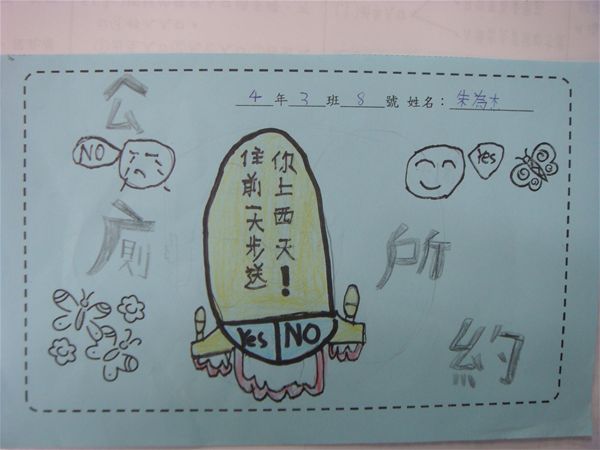 4 年 3 班 8 號 姓名：朱為杰
公
NO
Yes
往前一大步送
你上西天！
廁所
Yes NO
約